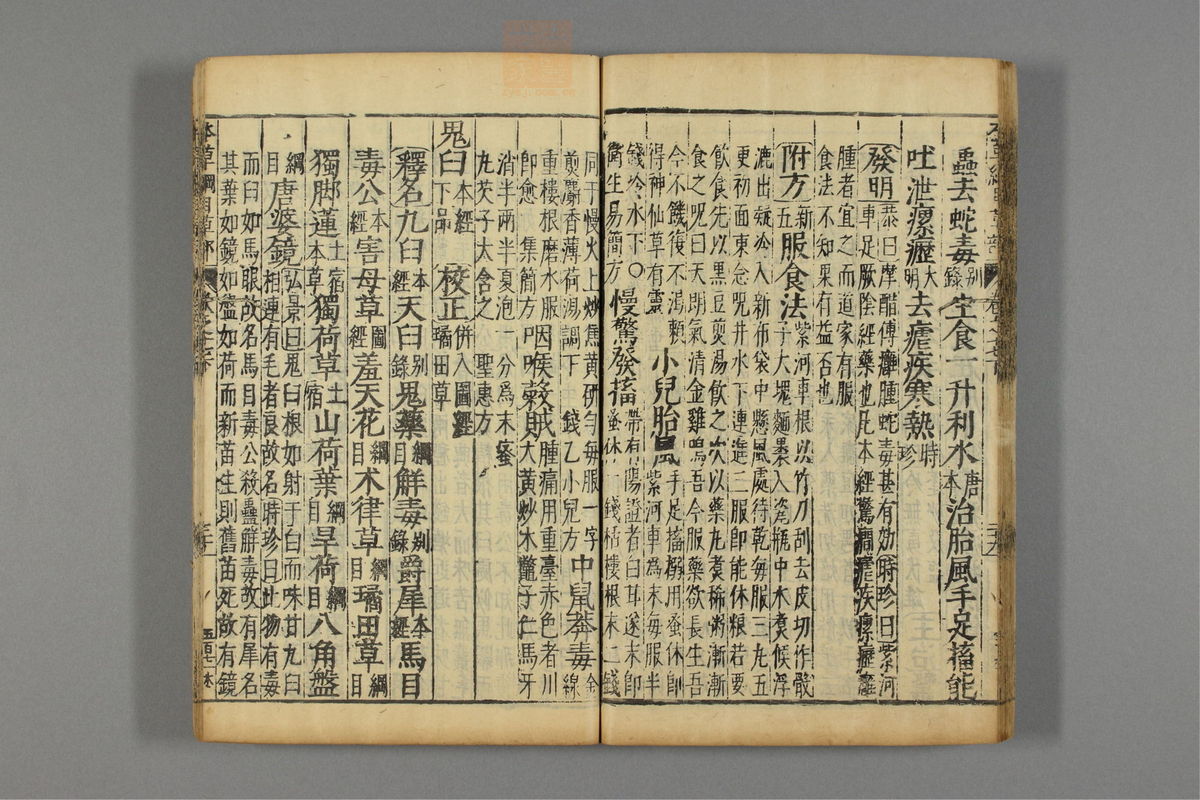 蟲去蛇毒別錄生食一升利水唐本治胎風手足搐能
吐泄瘰癧大明去瘧疾寒熱時珍
發明恭曰摩醋傅癰腫蛇毒甚有効時珍曰紫河
車足厥陰經藥也凡本經驚癎瘧疾瘰癧癰
腫者宜之而道家有服
食法不知果有益否也
附方新五服食法紫河車根以竹刀刮去皮切作骰
子大塊麵裹入瓷瓶中水煮候浮
漉出凝冷入新布袋中懸風處待乾每服三丸五
更初面東念呪井水下連進三服即能休粮若要
飲食先以黑豆煎湯飲之次以藥丸煮稀粥漸漸
食之呪曰天朗氣清金雞鳴吾今服藥欲長生吾
今不饑復不渴賴
得神仙草有靈小兒胎風手足搐搦用蚤休即
紫河車爲末每服半
錢冷水下○
衛生易簡方慢驚發搐帶有陽證者白甘遂末即
蚤休一錢栝樓根末二錢
同于慢火上炒焦黃研勻每服一字
煎麝香薄荷湯調下 錢乙小兒方中鼠莽毒金線
重樓根磨水服
即愈 集簡方咽喉穀賊腫痛用重臺赤色者川
大黃炒木鱉子仁馬牙
消半兩半夏泡一分爲末蜜
丸芡子大含之 聖惠方
鬼臼本經下品 校正併入圖經璚田草
釋名九臼本經天臼別錄鬼藥綱目解毒別錄爵犀本經馬目
毒公本經害母草圖經羞天花綱目朮律草綱目璚田草綱目
獨脚蓮土宿本草獨荷草土宿山荷葉綱目旱荷綱目八角盤
綱目唐婆鏡弘景曰鬼臼根如射干白而味甘九臼
相連有毛者良故名時珍曰此物有毒
而臼如馬眼故名馬目毒公殺蠱解毒故有犀名
其葉如鏡如盤如荷而新苗生則舊苗死故有鏡
本草綱目草部